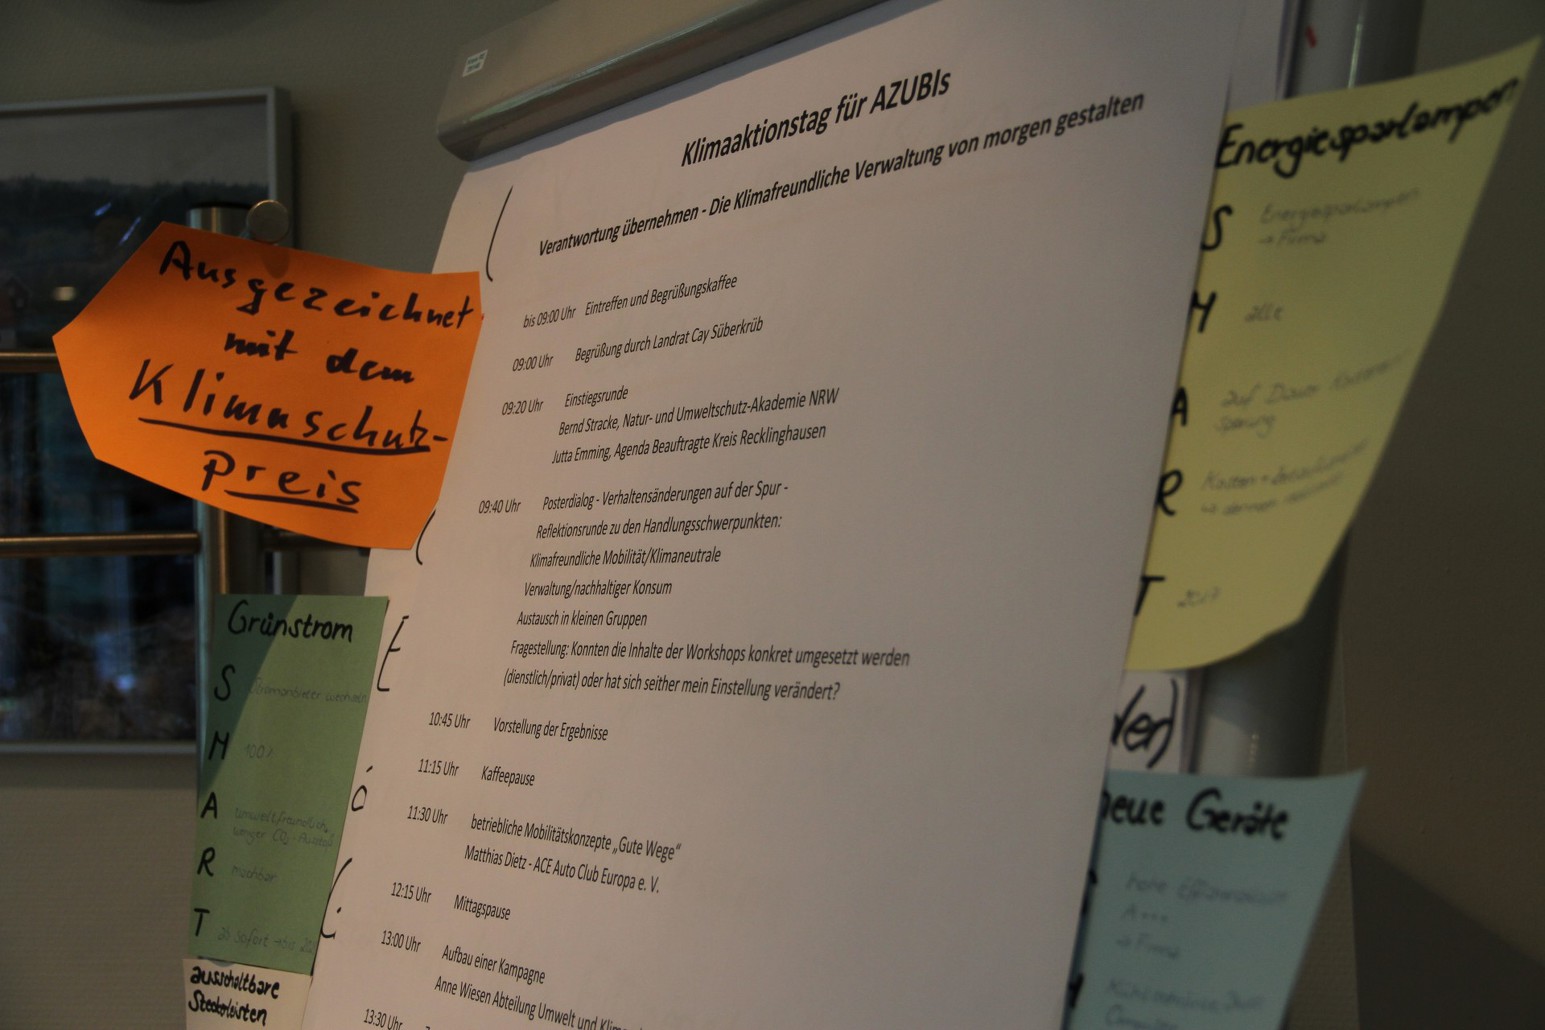 Klimaaktionstag für AZUBIs
Verantwortung übernehmen - Die Klimafreundliche Verwaltung von morgen gestalten
bis 09:00 Uhr Eintreffen und Begrüßungskaffee
09:00 Uhr Begrüßung durch Landrat Cay Süberkrüb
09:20 Uhr Einstiegsrunde
Bernd Stracke, Natur- und Umweltschutz-Akademie NRW
Jutta Emming, Agenda Beauftragte Kreis Recklinghausen
09:40 Uhr Posterdialog - Verhaltensänderungen auf der Spur -
Reflektionsrunde zu den Handlungsschwerpunkten:
Klimafreundliche Mobilität/Klimaneutrale
Verwaltung/nachhaltiger Konsum
Austausch in kleinen Gruppen
Fragestellung: Konnten die Inhalte der Workshops konkret umgesetzt werden
(dienstlich/privat) oder hat sich seither mein Einstellung verändert?
10:45 Uhr Vorstellung der Ergebnisse
11:15 Uhr Kaffeepause
11:30 Uhr betriebliche Mobilitätskonzepte „Gute Wege“
Matthias Dietz - ACE Auto Club Europa e. V.
12:15 Uhr Mittagspause
13:00 Uhr Aufbau einer Kampagne
Anne Wiesen Abteilung Umwelt und
13:30 Uhr
Ausgezeichnet
mit dem
Klimaschutz-
preis
Grünstrom
S Stromanbieter wechseln
M 100%
A umweltfreundlich,
weniger CO2-Ausstoß
R machbar
T ab sofort
ausschaltbare
Steckleisten
Energiesparlampen
S Energiesparlampen
→ Firma
M alle
A auf Dauer
R Kosten
T 2017
neue Geräte
hohe
A+++
→ Firma